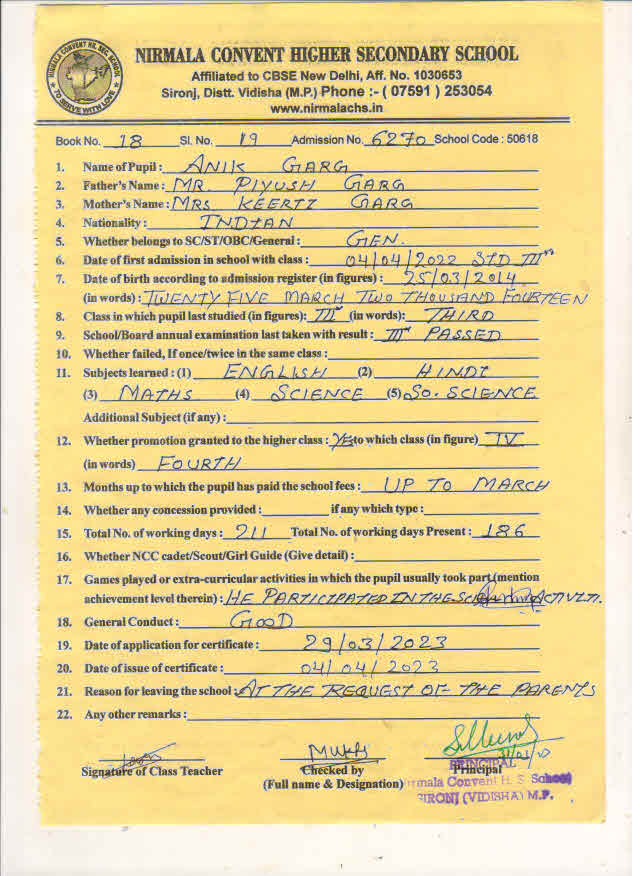 NIRMALA CONVENT HR. SEC. SCHOOL
TO SERVE WITH LOVE
NIRMALA CONVENT HIGHER SECONDARY SCHOOL
Affiliated to CBSE New Delhi, Aff. No. 1030653
Sironj, Distt. Vidisha (M.P.) Phone :- ( 07591 ) 253054
www.nirmalachs.in
Book No. 18 Sl. No. 19 Admission No. 6270 School Code : 50618
1. Name of Pupil : ANIK GARG
2. Father's Name : MR. PIYUSH GARG
3. Mother's Name : MRS KEERTI GARG
4. Nationality : INDIAN
5. Whether belongs to SC/ST/OBC/General : GEN.
6. Date of first admission in school with class : 04/04/2022 STD III
7. Date of birth according to admission register (in figures) : 25/03/2014
(in words) : TWENTY FIVE MARCH TWO THOUSAND FOURTEEN
8. Class in which pupil last studied (in figures): III (in words): THIRD
9. School/Board annual examination last taken with result : III PASSED
10. Whether failed, If once/twice in the same class :
11. Subjects learned : (1) ENGLISH (2) HINDI
(3) MATHS (4) SCIENCE (5) SO. SCIENCE
Additional Subject (if any) :
12. Whether promotion granted to the higher class : YES to which class (in figure) IV
(in words) FOURTH
13. Months up to which the pupil has paid the school fees : UP TO MARCH
14. Whether any concession provided : if any which type :
15. Total No. of working days : 211 Total No. of working days Present : 186
16. Whether NCC cadet/Scout/Girl Guide (Give detail) :
17. Games played or extra-curricular activities in which the pupil usually took part (mention
achievement level therein) : HE PARTICIPATED IN THE
18. General Conduct : GOOD
19. Date of application for certificate : 29/03/2023
20. Date of issue of certificate : 04/04/2023
21. Reason for leaving the school : AT THE REQUEST OF THE PARENTS
22. Any other remarks :
Signature of Class Teacher Checked by Principal
(Full name & Designation)
PRINCIPAL
Nirmala Convent H. S. School
SIRONJ (VIDISHA) M.P.